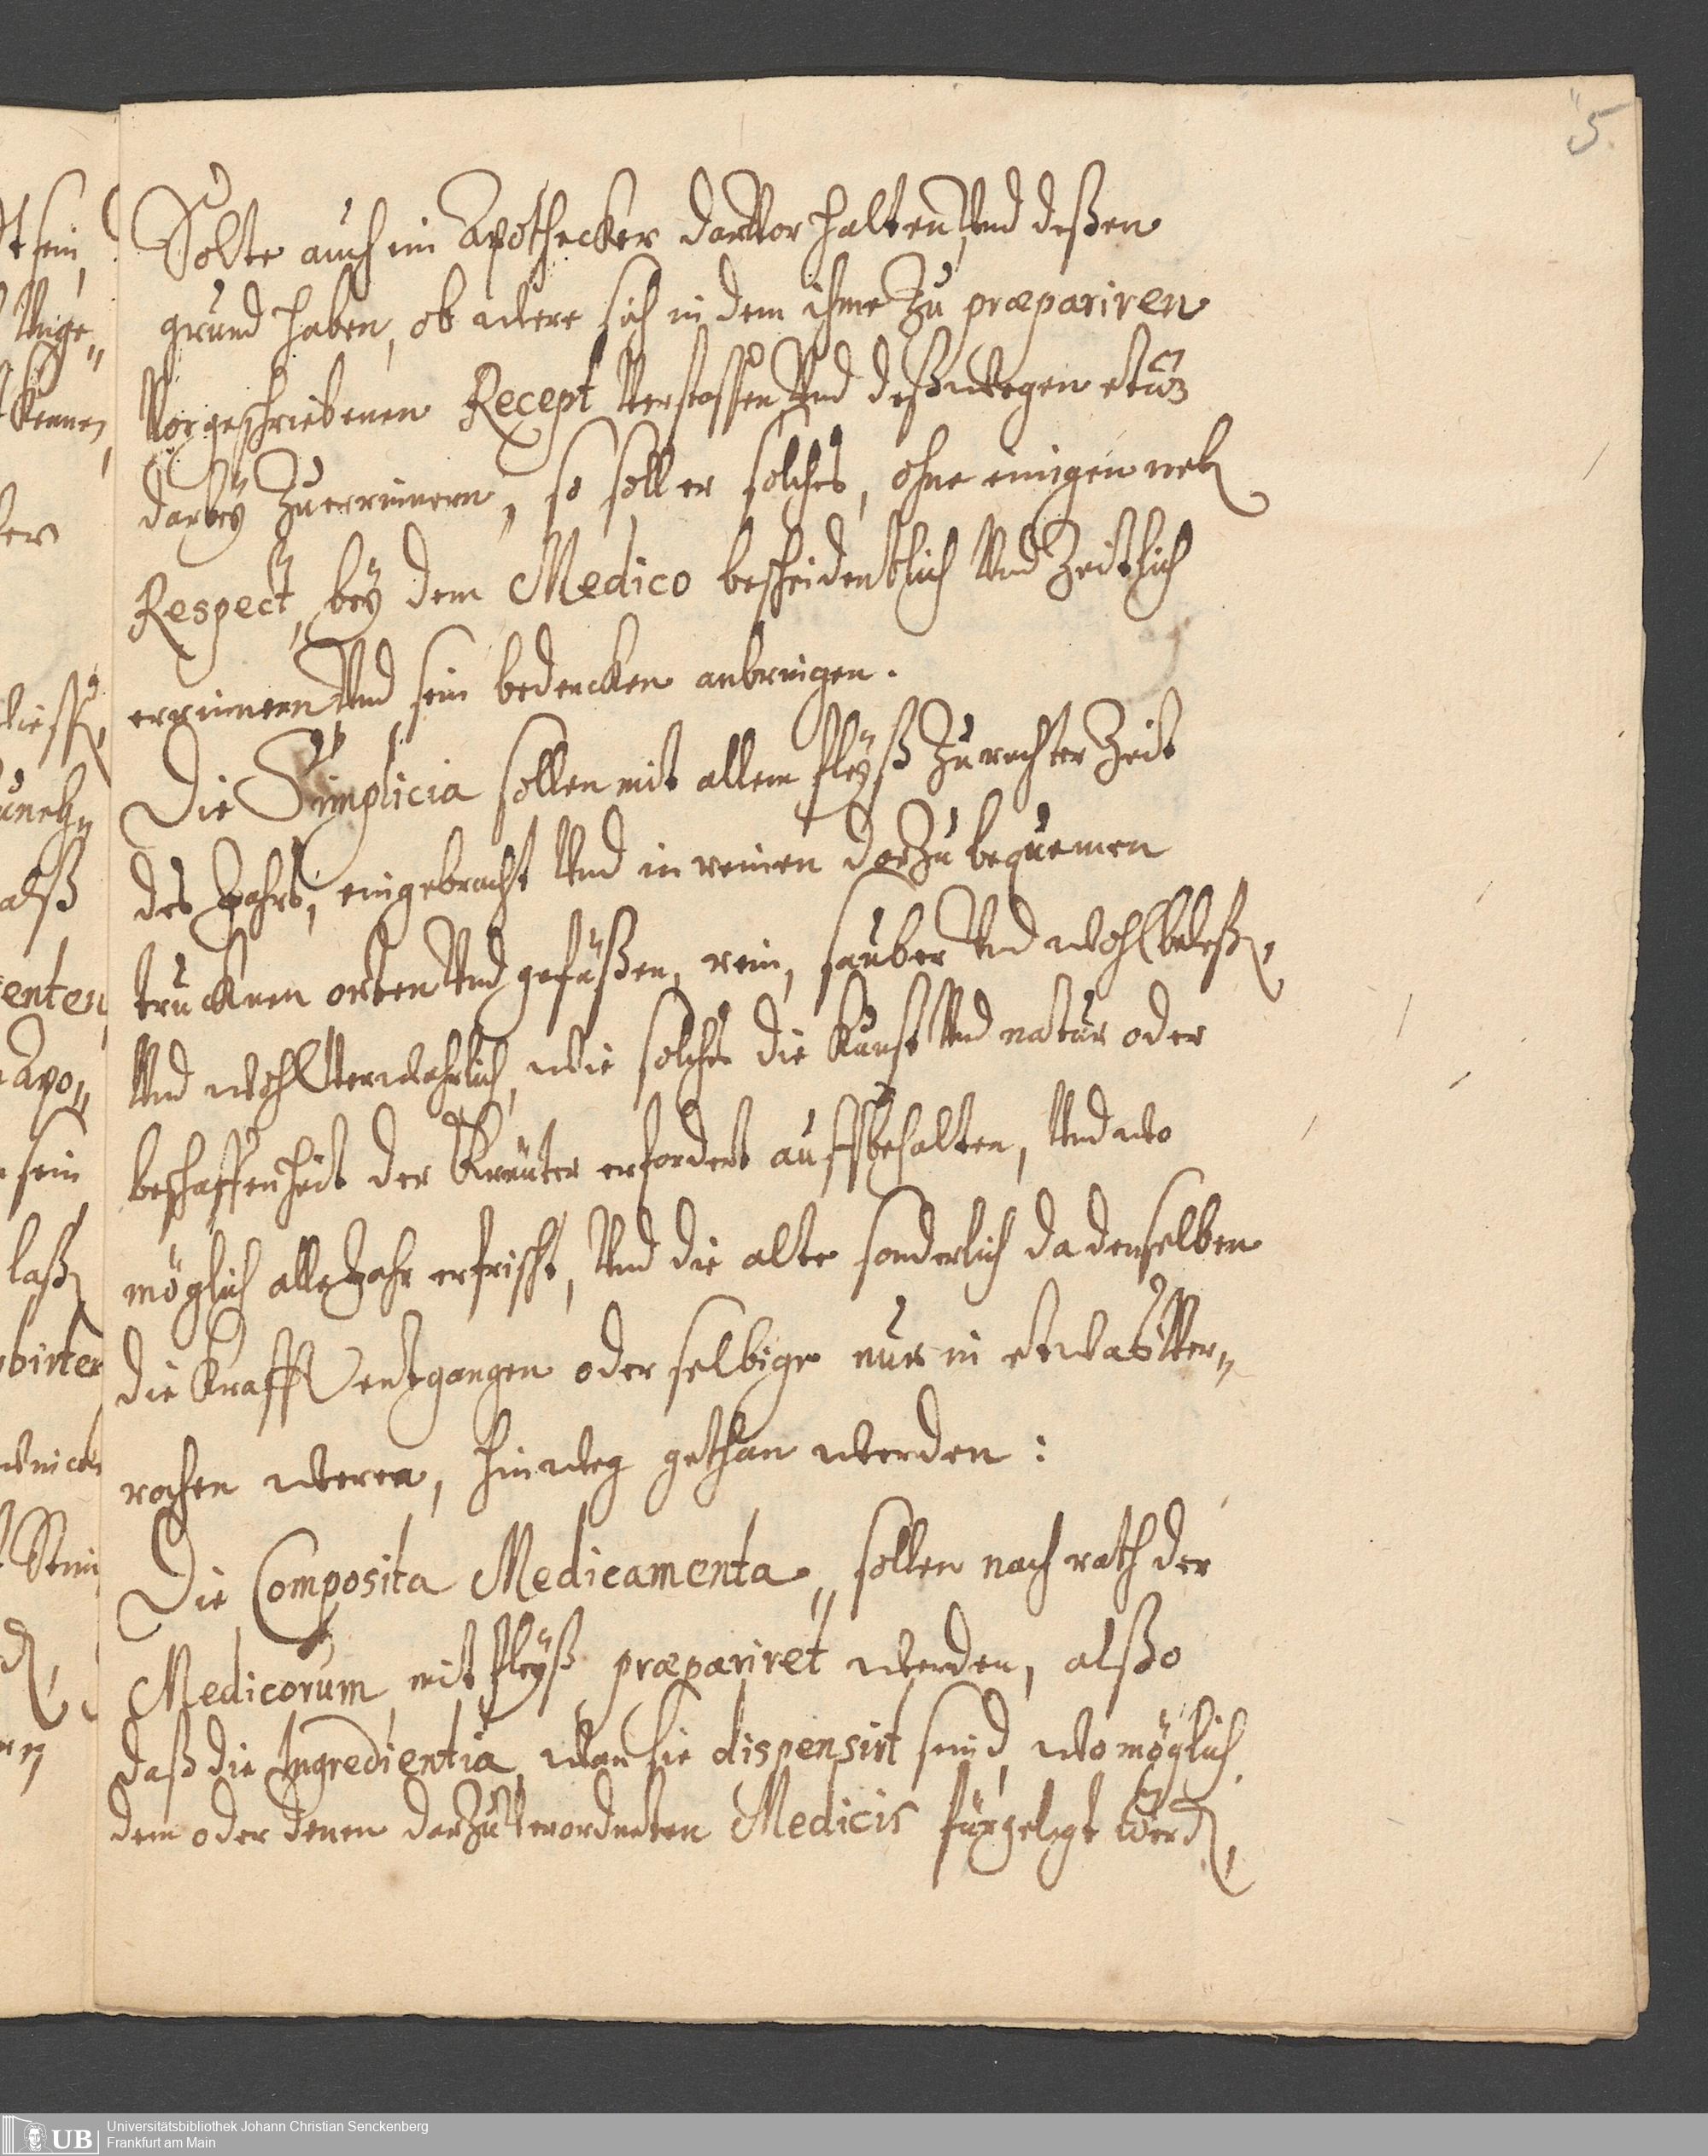 5.
Solte auch ein Apothecker darvor halten, Und deßen
grund haben, ob were sich in dem ihme Zu præpariren
Vorgeschriebenen Recept Verstossen, Und deßwegen etwz
darbeÿ Zuerrinnern, so soll er solches, ohne einigen
Respect, beÿ dem Medico bescheidentlich Und Zeitlich
errinnern, Und sein bedencken anbringen.
Die Simplicia sollen mit allem fleÿß Zu rechter Zeit
des Jahrs, eingebracht Und in reinen darzu bequemen
trucknen orten Und gefäßen, rein, sauber Und wohl
Und wohl Verwahrlich, wie solches die Kunst Und natur oder
beschaffenheit der Kräuter erfordert auffbehalten, Und wo
möglich alle Jahr erfrischt, Und die alte sonderlich da denselben
die Krafft entgangen oder selbige nur in etwas Ver„
rochen weren, hinweg gethan werden:
Die Composita Medicamenta, sollen nach rath der
Medicorum mit fleÿß præpariret werden, alßo
daß die Ingredientia, wan sie dispensirt seind, wo möglich,
dem oder denen darzu Verordneten Medicis fürgelegt werd,
t sein,
Unge„
kennen,
als
enten
Apo„
sein
laß
UB
Universitätsbibliothek Johann Christian Senckenberg
Frankfurt am Main